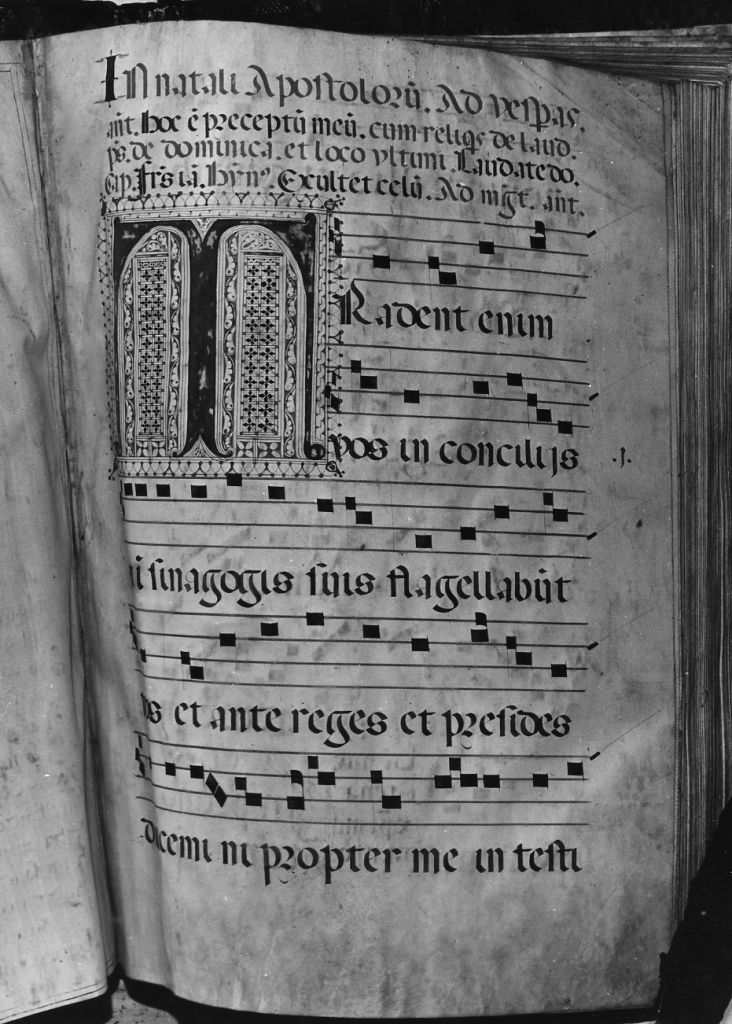 In natali Apostolorū. Ad vesp̄as.
añt. hoc ē preceptū meū. cum reliq̄s de laud.
p̄s. de dominica. et loco vltimi. Laudate do.
Cap. Fr̄s iā. hyn⁹. Exultet celū. Ad mḡt. añt.
TRadent enim
vos in concilijs
.j.
sinagogis suis flagellabūt
os et ante reges et presides
ducemini propter me in testi